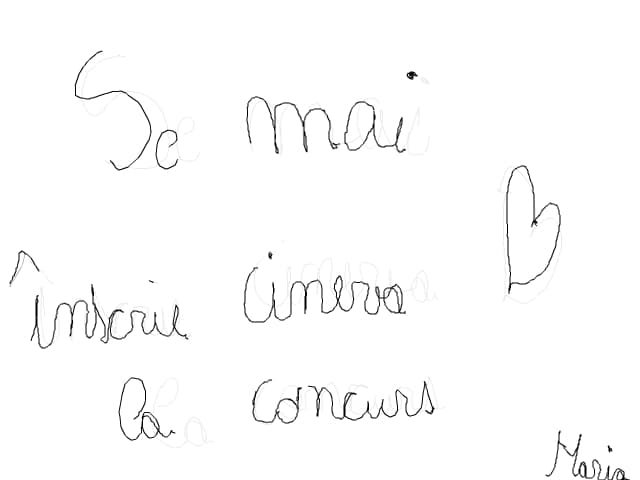 Se mai
înscrie cineva
la concurs
Maria